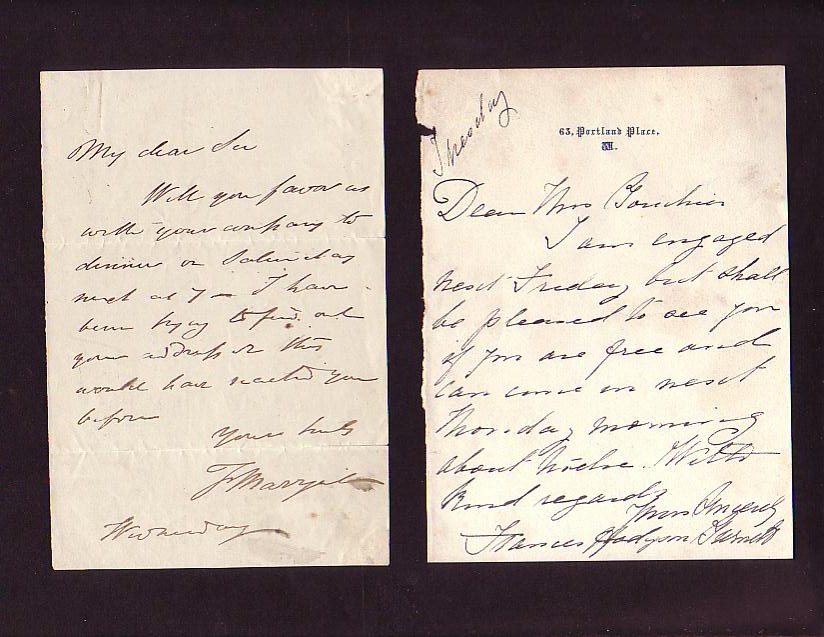 My dear Sir
Will you favor us
with your company to
dinner on Saturday
next at 7 — I have
been trying to find out
your address or this
would have reached you
before
Yours truly
F Marryat
Wednesday
Tuesday
63, Portland Place,
W.
Dear Mrs
I am engaged
next Friday but shall
be pleased to see you
if you are free and
can come in next
morning
about twelve. With
kind regards
Yours Sincerely
Frances Hodgson Burnett